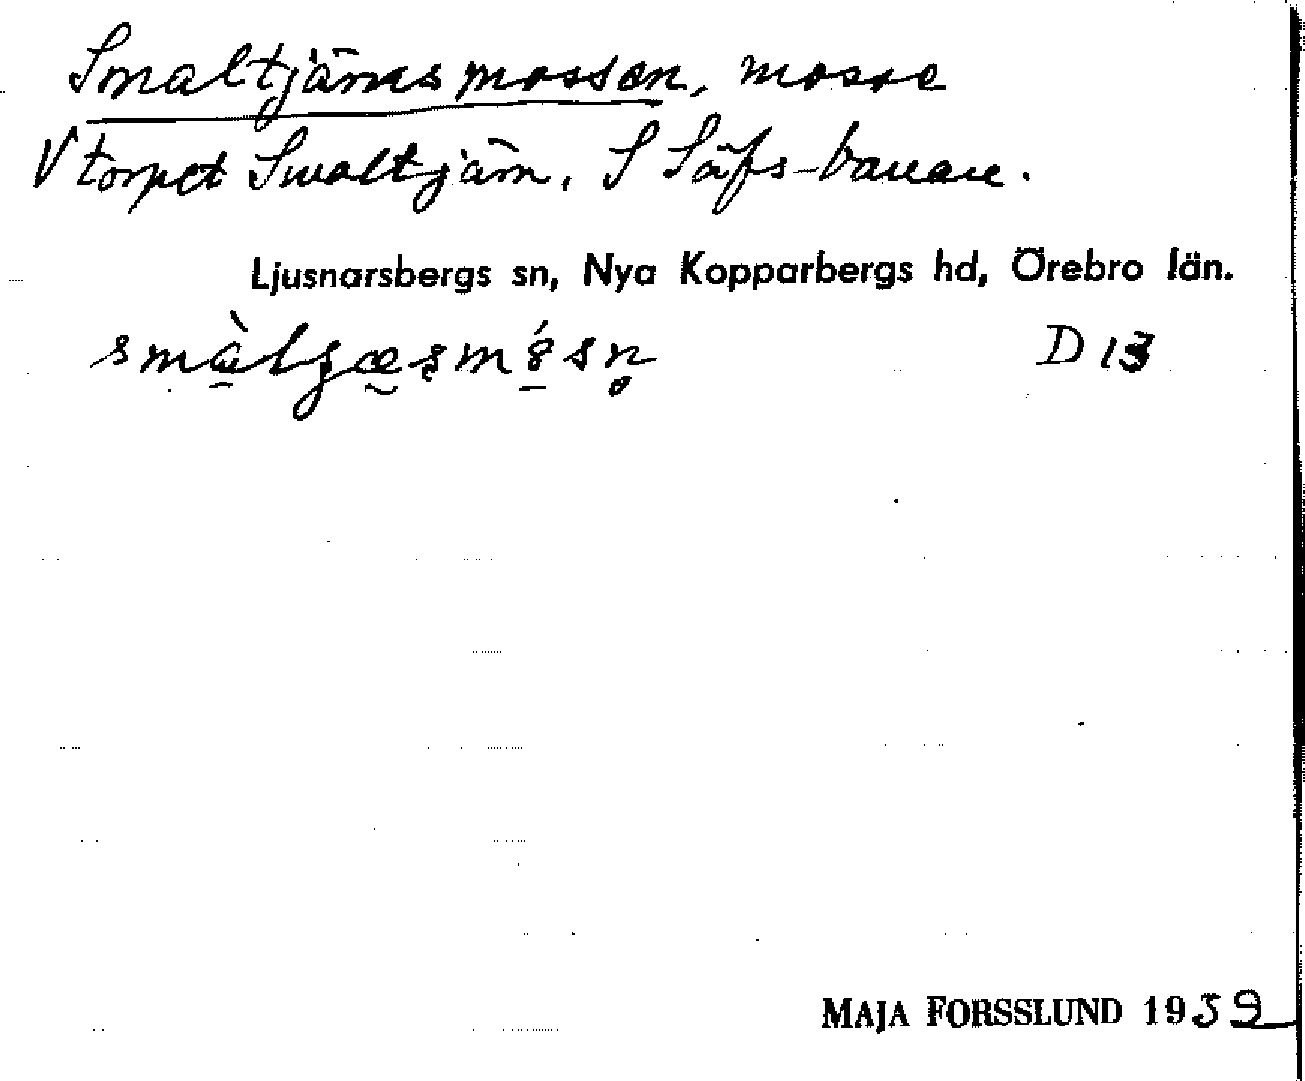 Smaltjärnsmossen, mosse
V torpet Smaltjärn, S Säfs-banan.
Ljusnarsbergs sn, Nya Kopparbergs hd, Örebro län.
D 13
MAJA FORSSLUND 1959